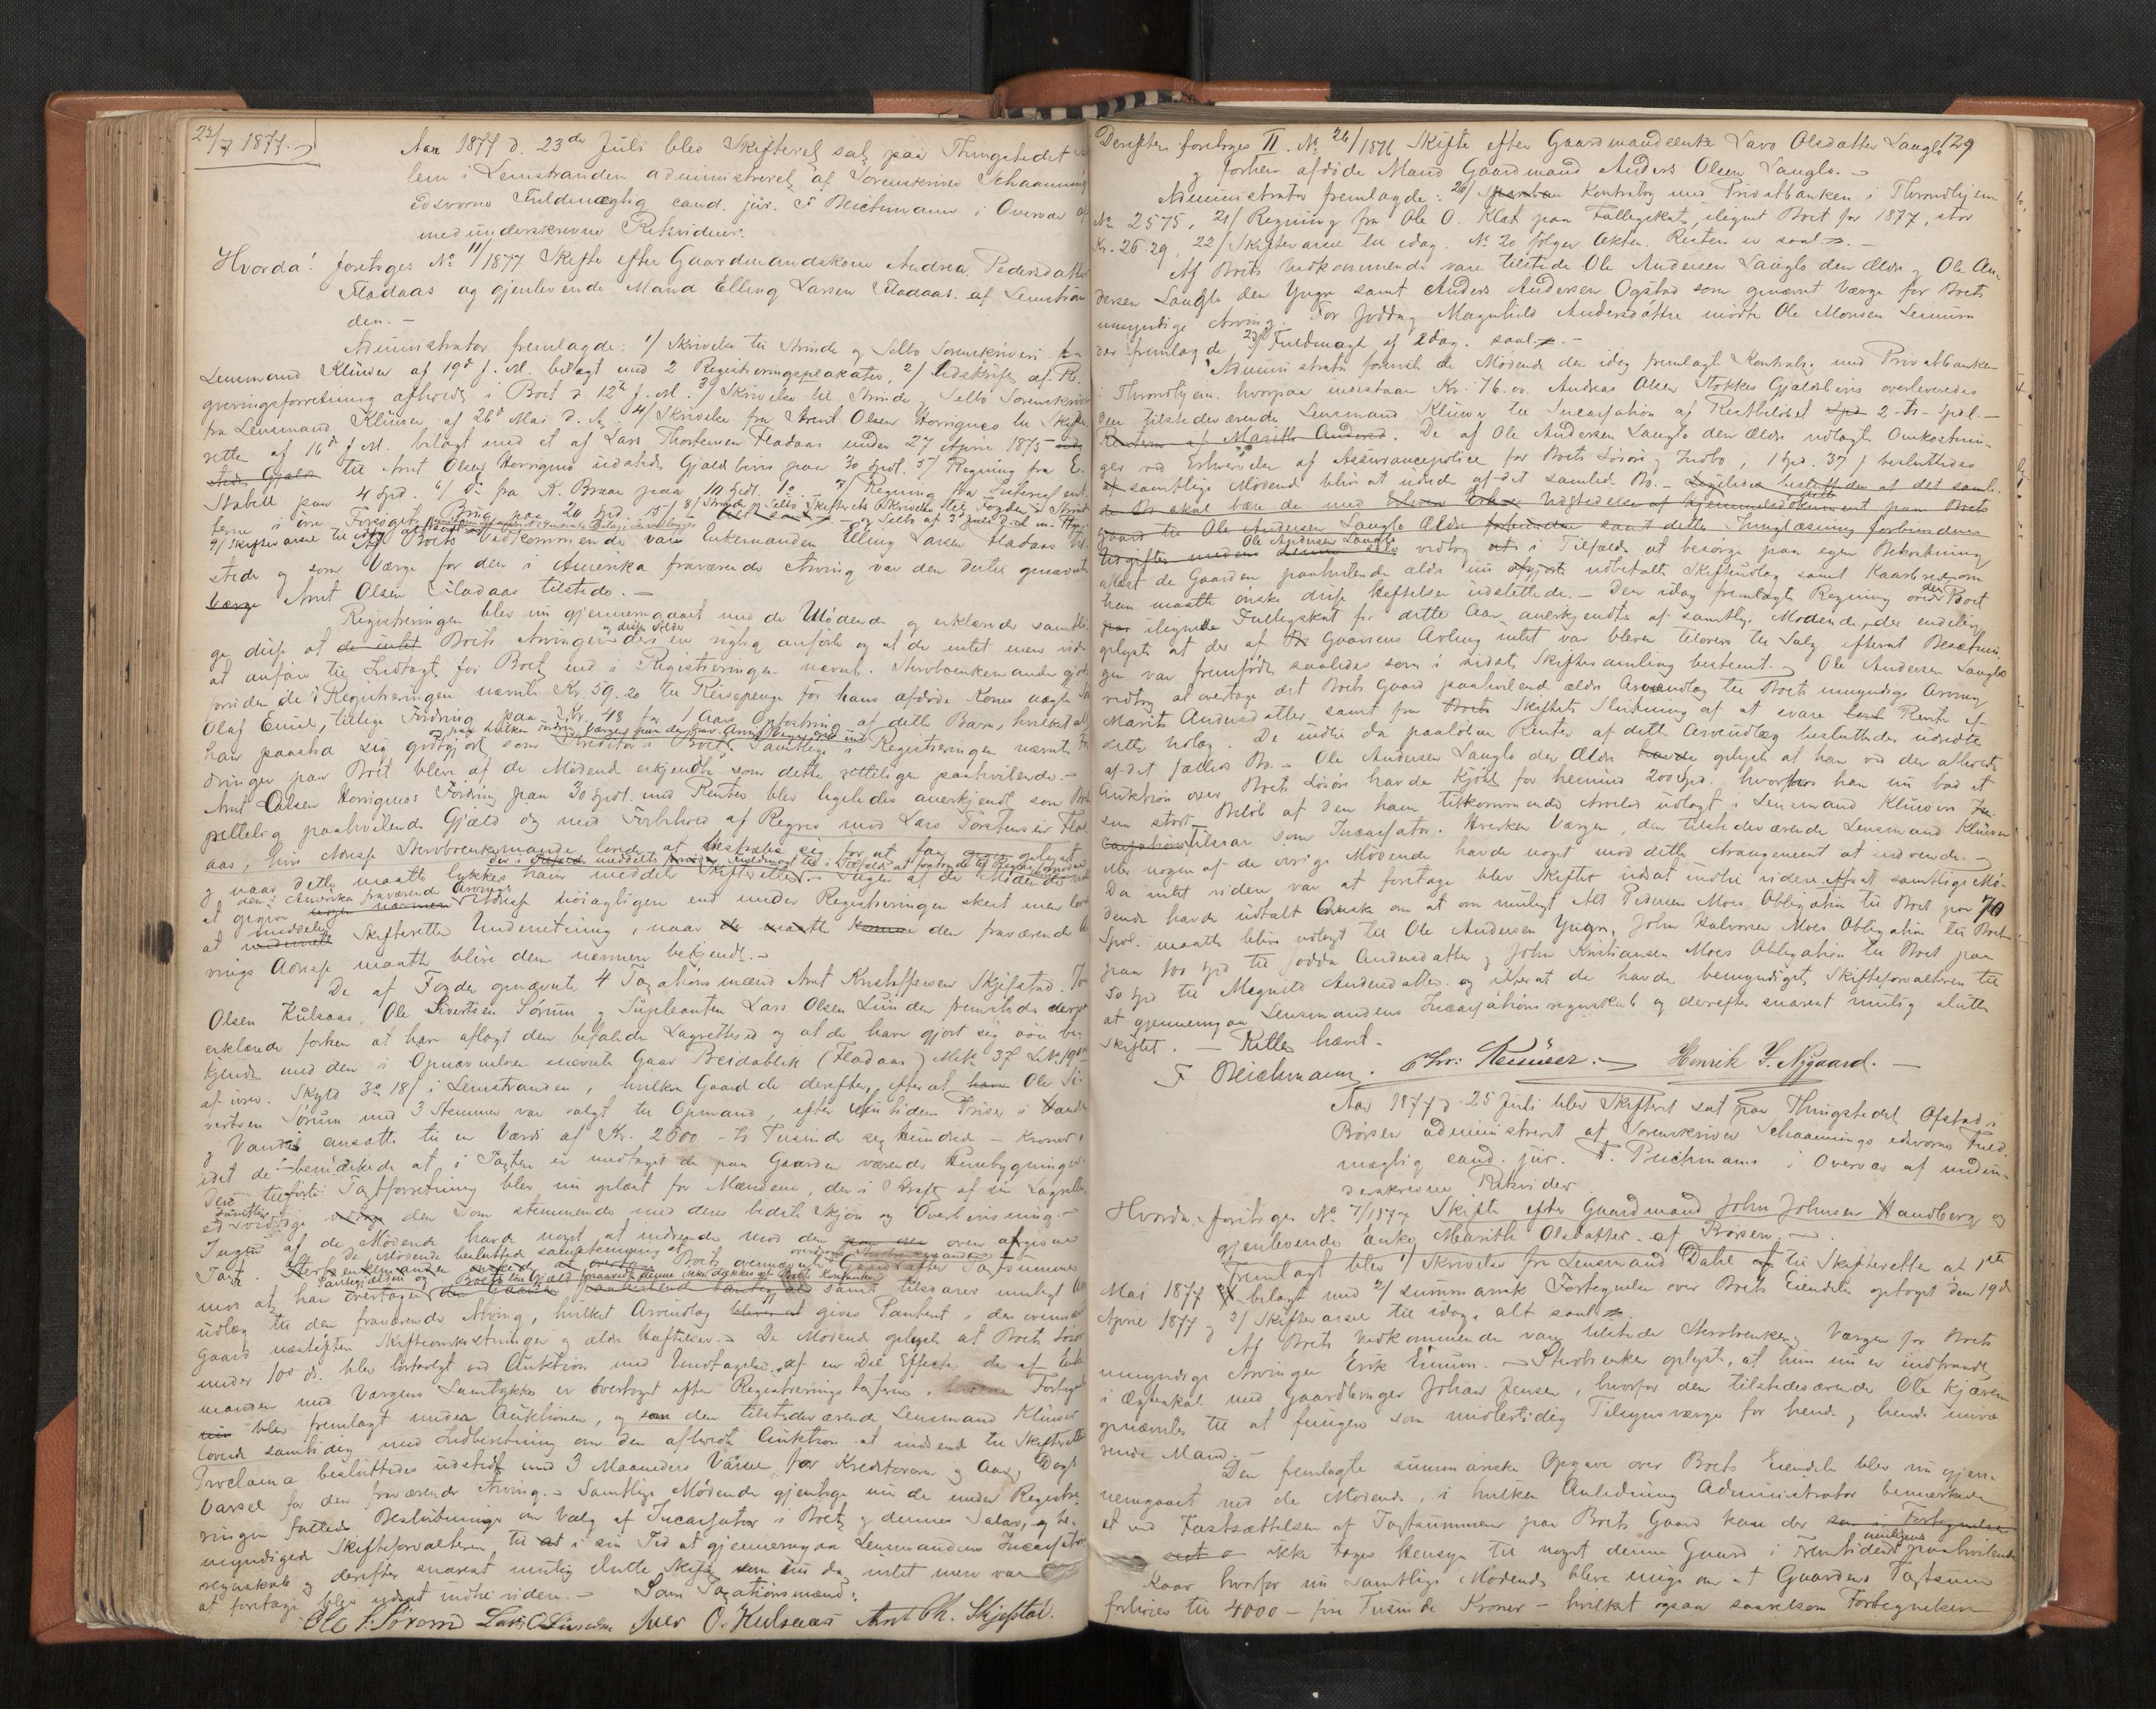 23/7 1877.
Aar 1877 d. 23de Juli blev Skifteret sat paa Thingstedet
lem i Lenstranden administreret af Sorenskriver Schaannings
edsvorne Fuldmægtig cand. jur. F Beichmann i Overvær af
medunderskrevne Retsvidner.
Hvorda! foretoges No 11/1877 Skifte efter Gaardmandskone Andrea Pedersdatter
Fladaas og gjenlevende Mand Elling Larsen Fladaas af Lenstran
den. -
Administrator fremlagde: 1/ Skrivelse til Strinde og Selbo Sorenskriveri fra
Lensmand Klüwer af 19d f. M. belagt med 2 Registreringsplakater, 2/ Udskrift af R.
greringsforretning afholdt i Boet d 12te f. M. 3/ Skrivelse til Strinde og Selbo Sorenskriveri
fra Lensmand Klüwer af 26d Mai d. A. 4/ Skrivelse fra Arnt Olsen Horrignes til Skifte
retten af 16d f. M. belagt med et af Lars Thorstensen Fladaas under 27 April 1875
til Arnt Olsen Horrignes udstedt Gjældsbevis paa 30 Spdl. 5/ Regning fra E.
Stabell paa 4 Spd. 6/ do fra K. Braae paa 10 Spdl. 7/ Regning fra Interessent
9/ Skiftevarsel til idag
Af Boets Vedkommende var Enkemanden Elling Larsen Fladaas til
stede og som Værge for den i Amerika fraværende Arving var den dertil opnævnte
Værge Arnt Olsen Fladaas tilstede. -
Registreringen blev nu gjennemgaaet med de Mødende og erklærede samtli
ge disse at Boets Arvinger og disses Alder deri er rigtig anført og at de intet mere vid
at anføre til Indtægt for Boet, end i Registreringen nævnt. Stervboenkemanden gjorde
foruden de i Registreringen nævnte Kr. 59.20 til Reisepenge for hans afdøde Kones uægte
Olaf Emil, tillige Fordring paa Kr. 48 for 1 Aars Opfostring af dette Barn, hvilket alt
han paastod sig godtgjort som Kreditor i Boet. Samtlige i Registreringen nævnte For
dringer paa Boet bleve af de Mødende erkjendte som dette rettelige paahvilende. -
Arnt Olsen Horrignes Fordring paa 30 Spdl. med Renter blev ligeledes anerkjendt som Boet
rettelig paahvilende Gjæld og med Forbehold af Regres mod Lars Torstensen Flad
aas, hvis Adresse Stervboenkemanden lovede at bestræbe sig for at faa oplyst
og naar dette maatte lykkes ham meddele Skifteretten. - Ingen af de Mødende
at opgive den i Amerika fraværende Arvings Adresse nøiagtigere end under Registreringen skeet men lovede
at meddele Skifteretten Underretning, naar den fraværende Ar
vings Adresse maatte blive dem nærmere bekjendt. -
De af Fogden opnævnte 4 Taxationsmænd Arnt Kristoffersen Skjefstad, Iver
Olsen Kulsaas, Ole Sivertsen Sørum og Supleanten Lars Olsen Linden fremstod derpaa
erklærede forhen at have aflagt den befalede Lagrettesed og at de have gjort sig nøie be
kjendt med den i Opnævnelsen nævnte Gaard Breidablik (Fladaas) Mtk 37 LNo 190a
af urev. Skyld 3 18/ i Lenstranden, hvilken Gaard de derefter, efterat Ole Si-
vertsen Sørum med 3 Stemmer var valgt til Opmand, efter nutidens Priser i Handel
og Vandel ansatte til en Værdi af Kr. 2600 - to Tusinde sex Hundred - Kroner,
idet de bemærkede at i Taxten er medtaget de paa Gaarden værende Husebygninger.
Den tilførte Taxtforretning blev nu oplæst for Mændene, der i Kraft af sin Lagrettes
ed vedtoge den som stemmende med deres bedste Skjøn og Overbevisning. -
Ingen af de Mødende havde noget at indvende mod den oven afgivne
Taxt.
mod at han overtager samt tilsvarer muligt Arve
udlæg til den fraværende Arving, hvilket Arveudlæg gives Panteret i den ovennævnte
Gaard næstefter Skifteomkostninger og ældre Hæftelser. - De Mødende oplyste at Boets Løsøre
under 100 d. blev bortsolgt ved Auktion med Undtagelse af en Del Effecter der af Enke
manden med Værgens Samtykke er overtaget efter Registreringstaxterne, Forteg
blev fremlagt under Auktionen, og som den tilstedeværende Lensmand Klüwer
lovede samtidig med Indberetning om den afholdte Auktion at indsende til Skifteretten
Proclama besluttedes udstedt med 3 Maaneders Varsel for Kreditorerne og Aar og Dags
Varsel for den fraværende Arving. - Samtlige Mødende gjentoge nu de under Registre
ringen fattede Beslutninger om Valg af Incassator i Boet og dennes Salær, og be-
myndigede Skifteforvalteren til at i sin Tid at gjennemgaa Lensmandens Incassations
regnskab og derefter snarest mulig slutte Skiftet, som nu da intet mere var
at foretage blev udsat indtil videre. - Som Taxationsmænd:
Ole S. Sørum Lars O Linden Iver O. Kulsaas Arnt Ch. Skjefstad.
129
Derefter foretoges II. No 26/1876 Skifte efter Gaardmandsenke Lavo Olsdatter Langlo
og forhen afdøde Mand Gaardmand Anders Olsen Langlo. -
Administrator fremlagde: 20/ Kontrabog med Privatbanken i Throndhjem
No 2575, 21/ Regning fra Ole O. Klæt paa Fattigskat, ilignet Boet for 1877, stor
Kr. 26.29, 22/ Skiftevarsel til idag. No 20 følger Akten. Resten er saal. -
Af Boets Vedkommende vare tilstede Ole Andersen Langlo den Ældre og Ole An-
dersen Langlo den Yngre samt Anders Andersen Ogstad som opnævnt Værge for Boets
umyndige Arving. For Jødda og Magnhild Andersdøttre mødte Ole Monsen Lenum
der fremlagde 23/ Fuldmagt af idag. saal. -
Administrator foreviste de Mødende den idag fremlagte Kontrabog med Privatbanken
i Throndhjem, hvorpaa indestaar Kr. 76. ør. Andreas Olsen Stokkes Gjældsbevis overleveredes
den tilstedeværende Lensmand Klüwer til Incassation af Restbeløbet 2 - to - Spd. -
De af Ole Andersen Langlo den Ældre udlagte Omkostnin-
ger ved Erhvervelse af Assurancepolice for Boets Løsøre og Indbo, 1 Spd. 37 f besluttedes
af samtlige Mødende bliv at udrede af det samlede Bo. -
Ole Andersen Langlo vedtog i Tilfælde at besørge paa egen Bekostning
aflæst de Gaarden paahvilende ældre nu udbetalte Skifteudlæg samt Kaarbrev om
han maatte ønske disse Heftelser udslettede. - Den idag fremlagte Regning over den Boet
ilignede Fattigskat for dette Aar anerkjendtes af samtlige Mødende, der endelig
oplyste at der af Gaardens Avling intet var bleven tilovers til Salg efterat Besætnin
gen var fremfødt saaledes som i sidste Skiftesamling bestemt. Ole Andersen Langlo
vedtog at overtage det Boets Gaard paahvilende ældre Arveudlæg til Boets umyndige Arving
Marit Andersdatter samt fra Skiftets Slutning af at svare Rente af
dette Udlæg. De indtil da paaløbne Renter af dette Arveudlæg besluttedes udredte
af det fælles Bo. - Ole Andersen Langlo den Ældre oplyste at han ved den afholdte
Auktion over Boets Løsøre havde kjøbt for henimod 200 Spd. hvorfor han nu bad et
saa stort Beløb af den ham tilkommende Arvelod udlagt i Lensmand Klüwers
Tilsvar som Incassator. Hverken Værgen, den tilstedeværende Lensmand Klüwer
eller nogen af de øvrige Mødende havde noget mod dette Arrangement at indvende. -
Da intet videre var at foretage blev Skiftet udsat indtil videre efterat samtlige Mø-
dende havde udtalt Ønske om at om muligt Alt Pedersen Moes Obligation til Boet paa 70
Spd. maatte blive udlagt til Ole Andersen Yngre, John Halvorsen Moes Obligation til Boet
paa 100 Spd til Jødda Andersdatter og John Kristiansen Moes Obligation til Boet paa
50 Spd til Magnhild Andersdatter og efterat de havde bemyndiget Skifteforvalteren til
at gjennemgaa Lensmandens Incassationsregnskab og derefter snarest mulig slutte
Skiftet. - Retten hævet. -
F Beichmann. Chr: Klüwer. Henrik J. Nygaard. -
Aar 1877 d. 25 Juli blev Skifteret sat paa Thingstedet Ofstad i
Børsen administreret af Sorenskriver Schaannings edsvorne Fuld-
mægtig cand. jur. F. Beichmann i Overvær af medun-
derskrevne Retsvidner
Hvorda foretoges No 7/1877 Skifte efter Gaardmand John Johnsen Handberg og
gjenlevende Enke Marith Olsdatter af Børsen. -
Fremlagt blev 1/ Skrivelse fra Lensmand Dahl til Skifteretten af 1ste
Mai 1877 belagt med 2/ summarisk Fortegnelse over Boets Eiendele optaget den 19d
April 1877 og 3/ Skiftevarsel til idag, alt saal.
Af Boets Vedkommende var tilstede Stervboenken og Værgen for Boets
umyndige Arvinger Erik Eimon. - Stervboenken oplyste, at hun nu er indtraadt
i Ægteskab med Gaardbruger Johan Jensen, hvorfor den tilstedeværende Ole Kjæren
opnævntes til at fungere som midlertidig Tilsynsværge for hende og hendes nuvæ
rende Mand. -
Den fremlagte summariske Opgave over Boets Eiendele blev nu gjen-
nemgaaet med de Mødende, i hvilken Anledning Administrator bemærkede
at ved Fastsættelsen af Taxtsummen paa Boets Gaard kan der
ikke tages Hensyn til noget denne Gaard i Fremtiden muligens paahvilende
Kaar hvorfor nu samtlige Mødende bleve enige om at Gaardens Taxtsum
forhøies til 4000 - fire Tusinde Kroner - hvilket ogsaa saavelsom Fortegnelsen